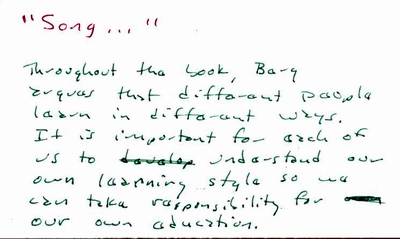 "Song..."
Throughout the book, Barg
argues that different people
learn in different ways.
It is important for each of
us to develop understand our
own learning style so we
can take responsibility for
our own education.